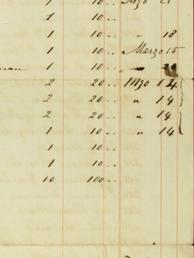 1 10 ..
1 10 ..
1 10 .. " 18
1 10 .. Marzo 15
1 10 ..
2 20 .. Mzo 14
2 20 .. " 14
2 20 .. " 14
1 10 .. " 14
1 10 ..
1 10 ..
10 100 ..